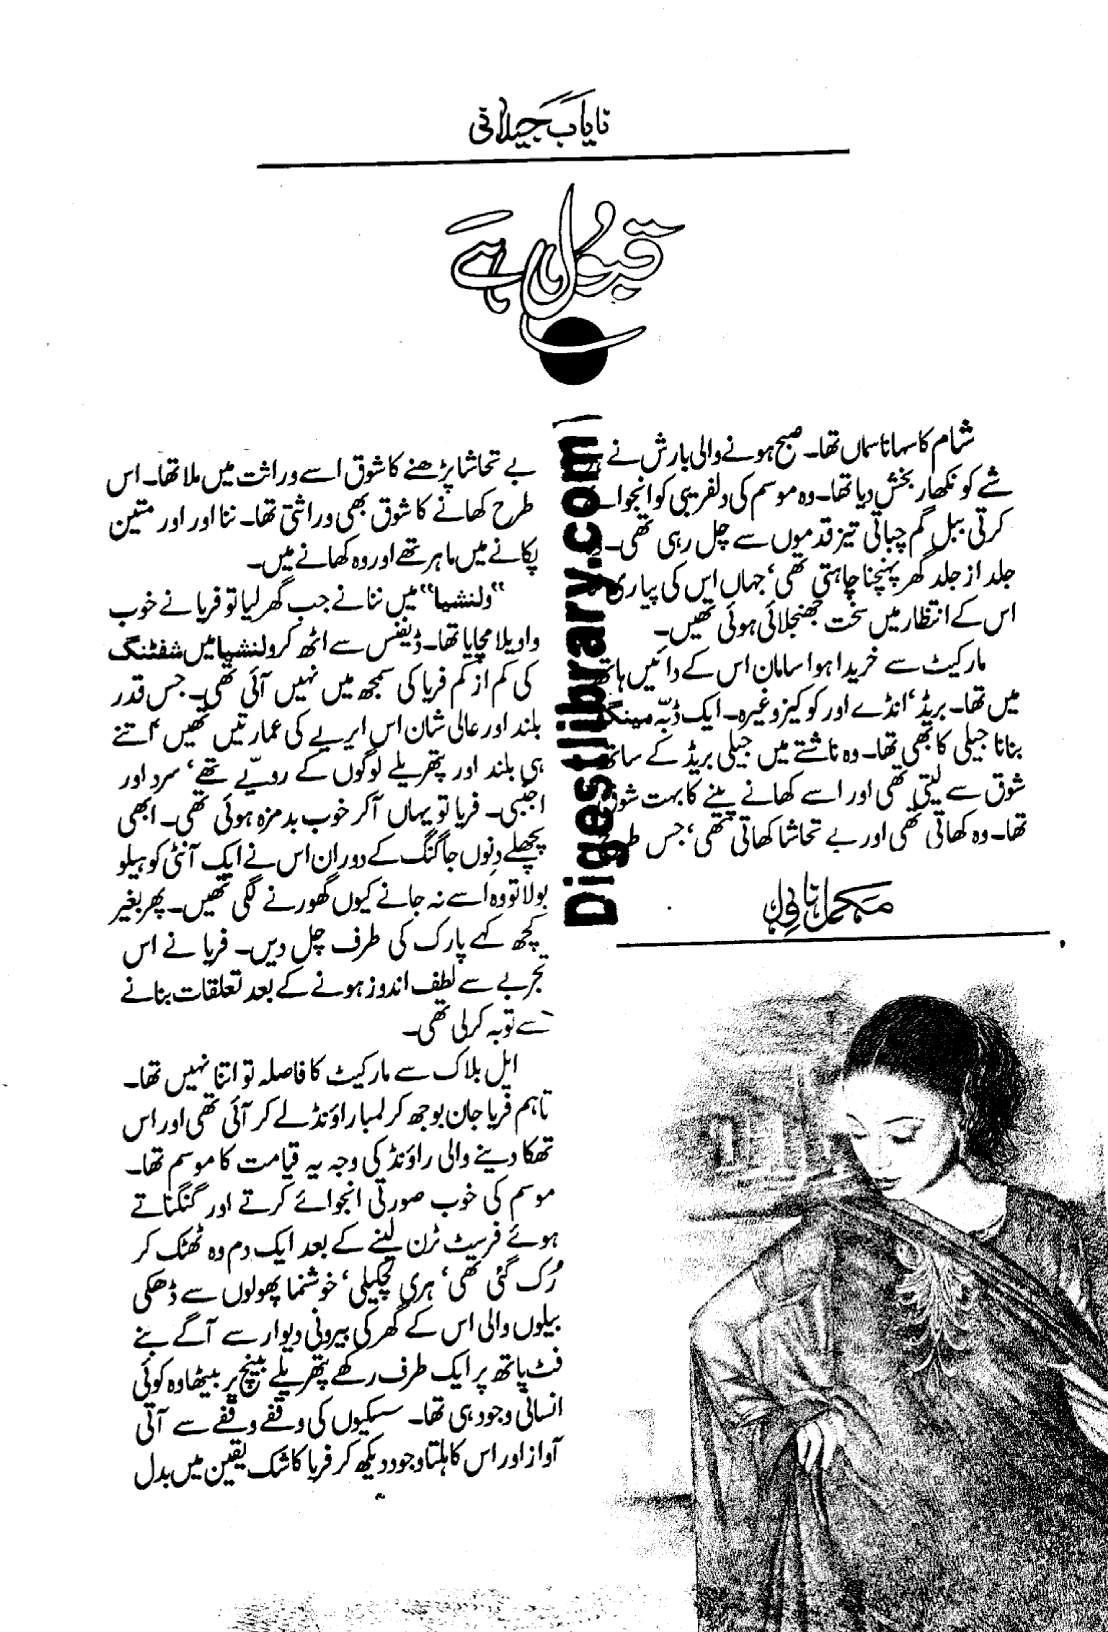 نایاب جیلانی
قبول ہے
شام کا سہانا سماں تھا۔ صبح ہونے والی بارش نے
شے کو نکھار بخش دیا تھا۔ وہ موسم کی دلفریبی کو انجوائے
کرتی ببل گم چباتی تیز قدموں سے چل رہی تھی۔
جلد از جلد گھر پہنچنا چاہتی تھی، جہاں اس کی پیاری
اس کے انتظار میں سخت جھنجلائی ہوئی تھیں۔
مارکیٹ سے خریدا ہوا سامان اس کے دائیں ہاتھ
میں تھا۔ بریڈ، انڈے اور کوکیز وغیرہ۔ ایک ڈبہ مینگو
بنانا جیلی کا بھی تھا۔ وہ ناشتے میں جیلی بریڈ کے ساتھ
شوق سے لیتی تھی اور اسے کھانے پینے کا بہت شوق
تھا۔ وہ کھاتی تھی اور بے تحاشا کھاتی تھی، جس طرح
مکمل ناول
بے تحاشا پڑھنے کا شوق اسے وراثت میں ملا تھا۔ اس
طرح کھانے کا شوق بھی وراثتی تھا۔ ننا اور اور متین
پکانے میں ماہر تھے اور وہ کھانے میں۔
”ولنشیا“ میں ننا نے جب گھر لیا تو فریا نے خوب
واویلا مچایا تھا۔ ڈیفنس سے اٹھ کر ولنشیا میں شفٹنگ
کی کم از کم فریا کی سمجھ میں نہیں آئی تھی۔ جس قدر
بلند اور عالی شان اس ایریے کی عمارتیں تھیں، اتنے
ہی بلند اور پتھریلے لوگوں کے رویّے تھے، سرد اور
اجنبی۔ فریا تو یہاں آ کر خوب بدمزہ ہوئی تھی۔ ابھی
پچھلے دنوں جاگنگ کے دوران اس نے ایک آنٹی کو ہیلو
بولا تو وہ اسے نہ جانے کیوں گھورنے لگی تھیں۔ پھر بغیر
کچھ کہے پارک کی طرف چل دیں۔ فریا نے اس
تجربے سے لطف اندوز ہونے کے بعد تعلقات بنانے
سے توبہ کر لی تھی۔
اپل بلاک سے مارکیٹ کا فاصلہ تو اتنا نہیں تھا۔
تاہم فریا جان بوجھ کر لمبا راؤنڈ لے کر آئی تھی اور اس
تھکا دینے والی راؤنڈ کی وجہ یہ قیامت کا موسم تھا۔
موسم کی خوب صورتی انجوائے کرتے اور گنگناتے
ہوئے فرسٹ ٹرن لینے کے بعد ایک دم وہ ٹھٹک کر
رُک گئی تھی، ہری لچکیلی، خوشنما پھولوں سے ڈھکی
بیلوں والی اس کے گھر کی بیرونی دیوار سے آگے بنے
فٹ پاتھ پر ایک طرف رکھے پتھریلے بینچ پر بیٹھا وہ کوئی
انسانی وجود ہی تھا۔ سسکیوں کی وقفے وقفے سے آتی
آواز اور اس کا ہلتا وجود دیکھ کر فریا کا شک یقین میں بدل
Digestlibrary.com